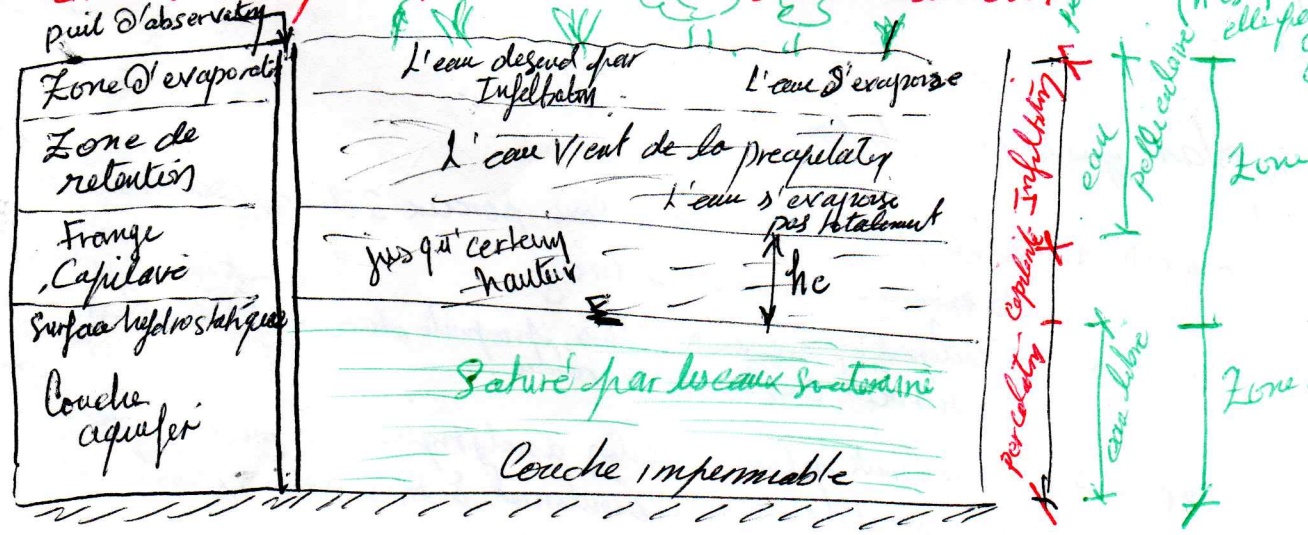 puit d'observation
Zone d'evaporati
Zone de
retention
Frange
Capilare
Surface hydrostatique
Couche
aquifer
L'eau desend par
Infeltration
L'eau s'evaporise
L'eau vient de la precipitation
L'eau s'evaporise
pas totalement
jusqu'certeny
hauteur
hc
Saturé par les eaux
Couche impermiable
Infiltration
Capilarite
percolation
eau
pelleculaire
eau libre
Zone
Zone